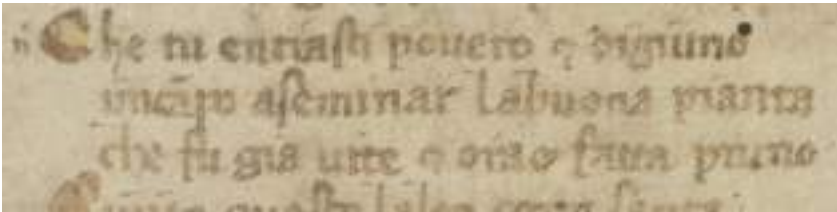 Che tu entrasti pouero ⁊ digiuno
incāpo aseminar labuona pianta
che fu gia uite ⁊ orae fatta pruno